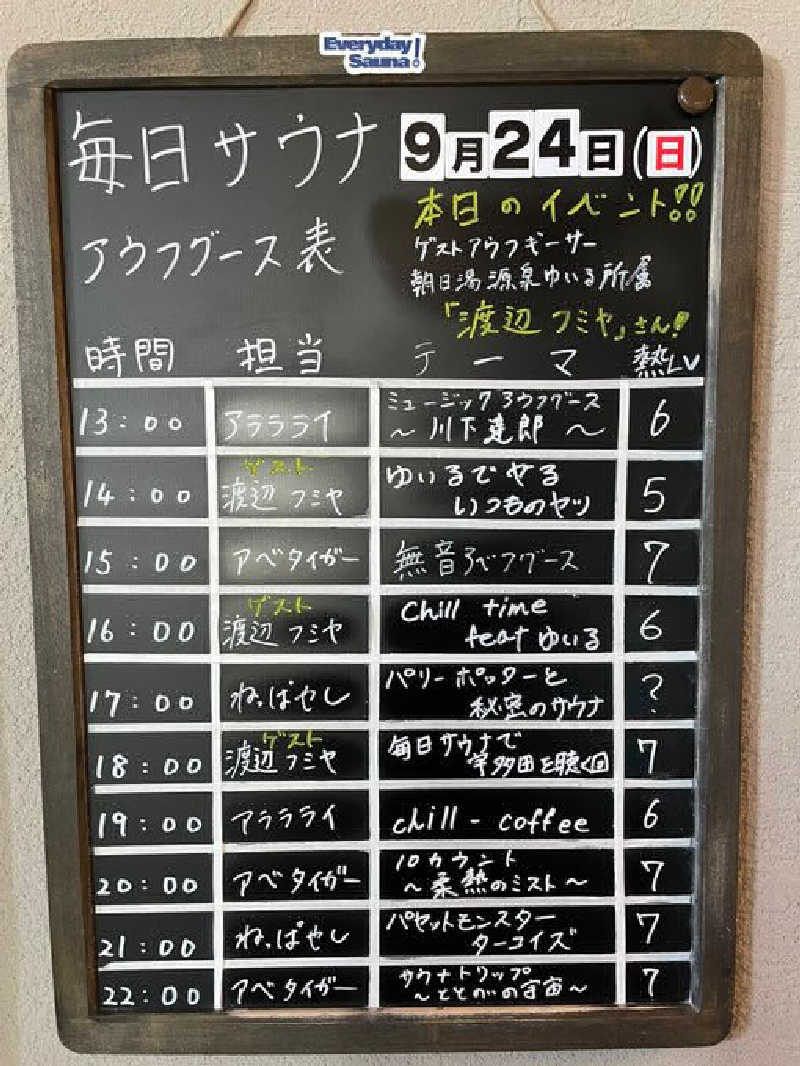 Everyday
Sauna!
毎日サウナ
9月24日(日)
アウフグース表
本日のイベント!!
ゲストアウフギーサー
朝日湯源泉ゆいる所属
「渡辺フミヤ」さん!
時間 担当 テーマ 熱LV
13:00 アララライ ミュージックアウフグース
～川下達郎～ 6
14:00 ゲスト
渡辺フミヤ ゆいるでやる
いつものヤツ 5
15:00 アベタイガー 無音アベフグース 7
16:00 ゲスト
渡辺フミヤ chill time
feat ゆいる 6
17:00 ねっぱやし パリーポッターと
秘密のサウナ ?
18:00 ゲスト
渡辺フミヤ 毎日サウナで
宇多田を聴く回 7
19:00 アララライ chill - coffee 6
20:00 アベタイガー 10カウント
～柔熱のミスト～ 7
21:00 ねっぱやし パセットモンスター
ターコイズ 7
22:00 アベタイガー サウナトリップ
～ととのいの宇宙～ 7